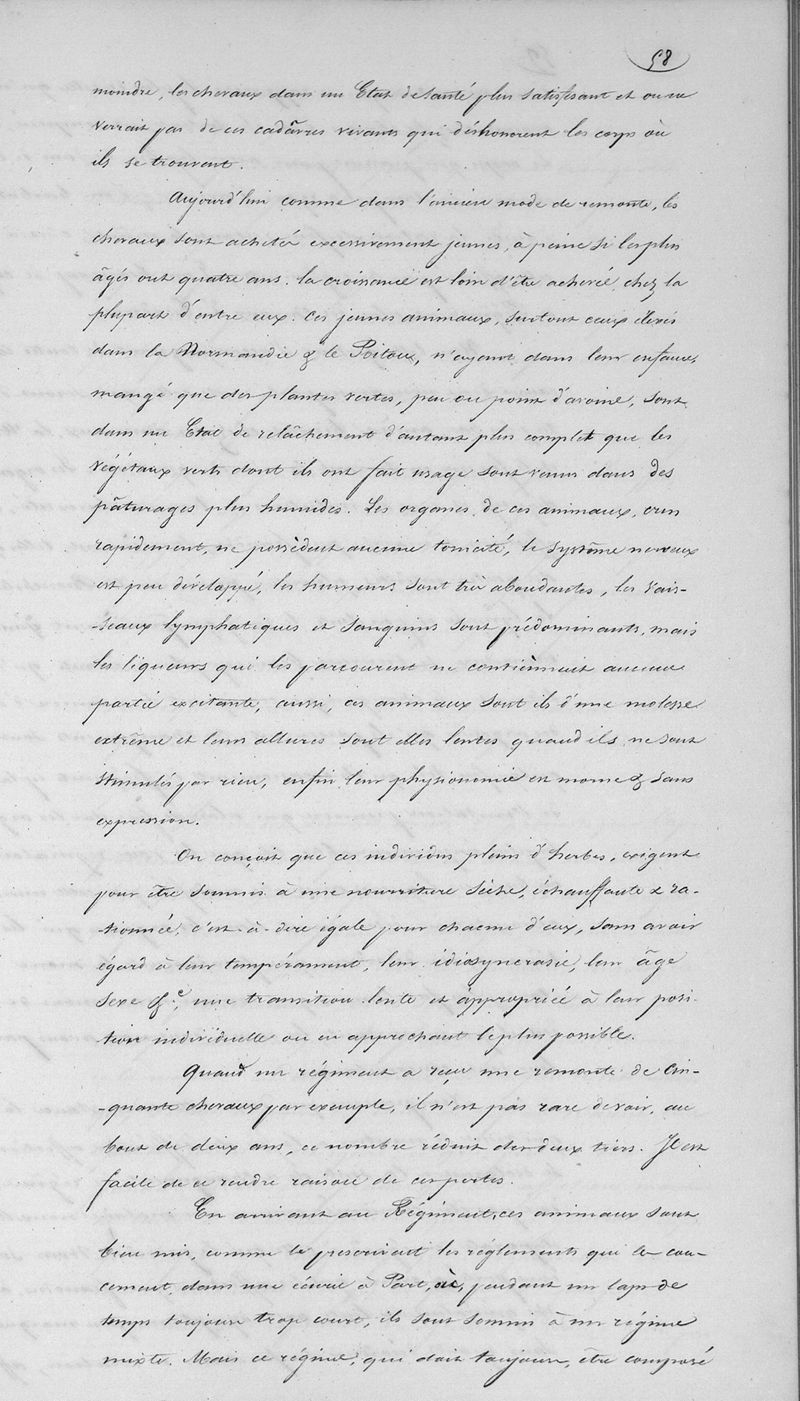 58
moindre, les chevaux dans un Etat de Santé plus satisfesant et on ne
verrait pas de ces cadâvres vivants qui déshonorent les corps où
ils se trouvent.
Aujourd'hui comme dans l'ancien mode de remonte, les
chevaux sont achetés excessivement jeunes, à peine si les plus
âgés ont quatre ans. la croissance est loin d'être achevée chez la
plupart d'entre eux. Ces jeunes animaux, surtout ceux élevés
dans la Normandie & le Poitou, n'ayant dans leur enfance,
mangé que des plantes vertes, peu ou point d'avoine, sont
dans un Etat de relâchement d'autant plus complet que les
végétaux verts dont ils ont fait usage sont venus dans des
pâturages plus humides. Les organes de ces animaux, crus
rapidement, ne possèdent aucune tonicité, le système nerveux
est peu développé, les humeurs sont très abondantes, les vais-
-seaux lymphatiques et sanguins sont prédominants, mais
les liqueurs qui les parcourent ne contiènnent aucune
partie excitante, aussi, ces animaux sont ils d'une molesse
extrême et leurs allures sont elles lentes quand ils ne sont
stimulés par rien, enfin leur physionomie est morne & sans
expression.
On conçoit que ces individus pleins d'herbes, exigent
pour être soumis à une nourriture sèche, échauffante & ra-
-tionnée, c'est-à-dire égale pour chacun d'eux, sans avoir
égard à leur tempérament, leur idiosyncrasie, leur âge
sexe &c, une transition lente et appropriée à leur posi-
tion individuelle ou en approchant le plus possible.
Quand un régiment a reçu une remonte de Cin-
-quante chevaux par exemple, il n'est pas rare de voir, au
bout de deux ans, ce nombre réduit des deux tiers. Il est
facile de se rendre raison de ces pertes.
En arrivant au Régiment, ces animaux sont
bien mis, comme le prescrivent les règlements qui les con-
cernent, dans une écurie à Part, où, pendant un laps de
temps toujours trop court, ils sont soumis à un régime
mixte. Mais ce régime, qui doit toujours, être composé